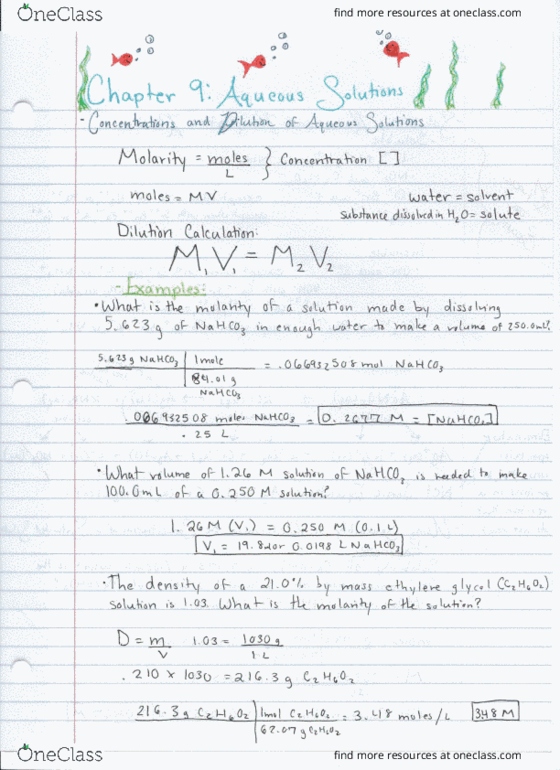 OneClass
find more resources at oneclass.com
Chapter 9: Aqueous Solutions
- Concentrations and Dilution of Aqueous Solutions
Molarity = moles / L } Concentration [ ]
moles = MV
water = solvent
substance dissolved in H₂O = solute
Dilution Calculation:
M₁V₁ = M₂V₂
- Examples:
• What is the molarity of a solution made by dissolving
5.623 g of NaHCO₃ in enough water to make a volume of 250.0mL?
5.623g NaHCO₃ | 1mole
84.01 g
NaHCO₃
= .066932508 mol NaHCO₃
.066932508 moles NaHCO₃ / .25 L = 0.2677 M = [NaHCO₃]
• What volume of 1.26 M solution of NaHCO₃ is needed to make
100.0mL of a 0.250 M solution?
1.26M (V₁) = 0.250 M (0.1 L)
V₁ = 19.8 or 0.0198 L NaHCO₃
• The density of a 21.0% by mass ethylene glycol (C₂H₆O₂)
solution is 1.03. What is the molarity of the solution?
D = m / V 1.03 = 1030 g / 1 L
.210 x 1030 = 216.3 g C₂H₆O₂
216.3g C₂H₆O₂ | 1mol C₂H₆O₂ = 3.48 moles/L 3.48 M
62.07g C₂H₆O₂
OneClass
find more resources at oneclass.com